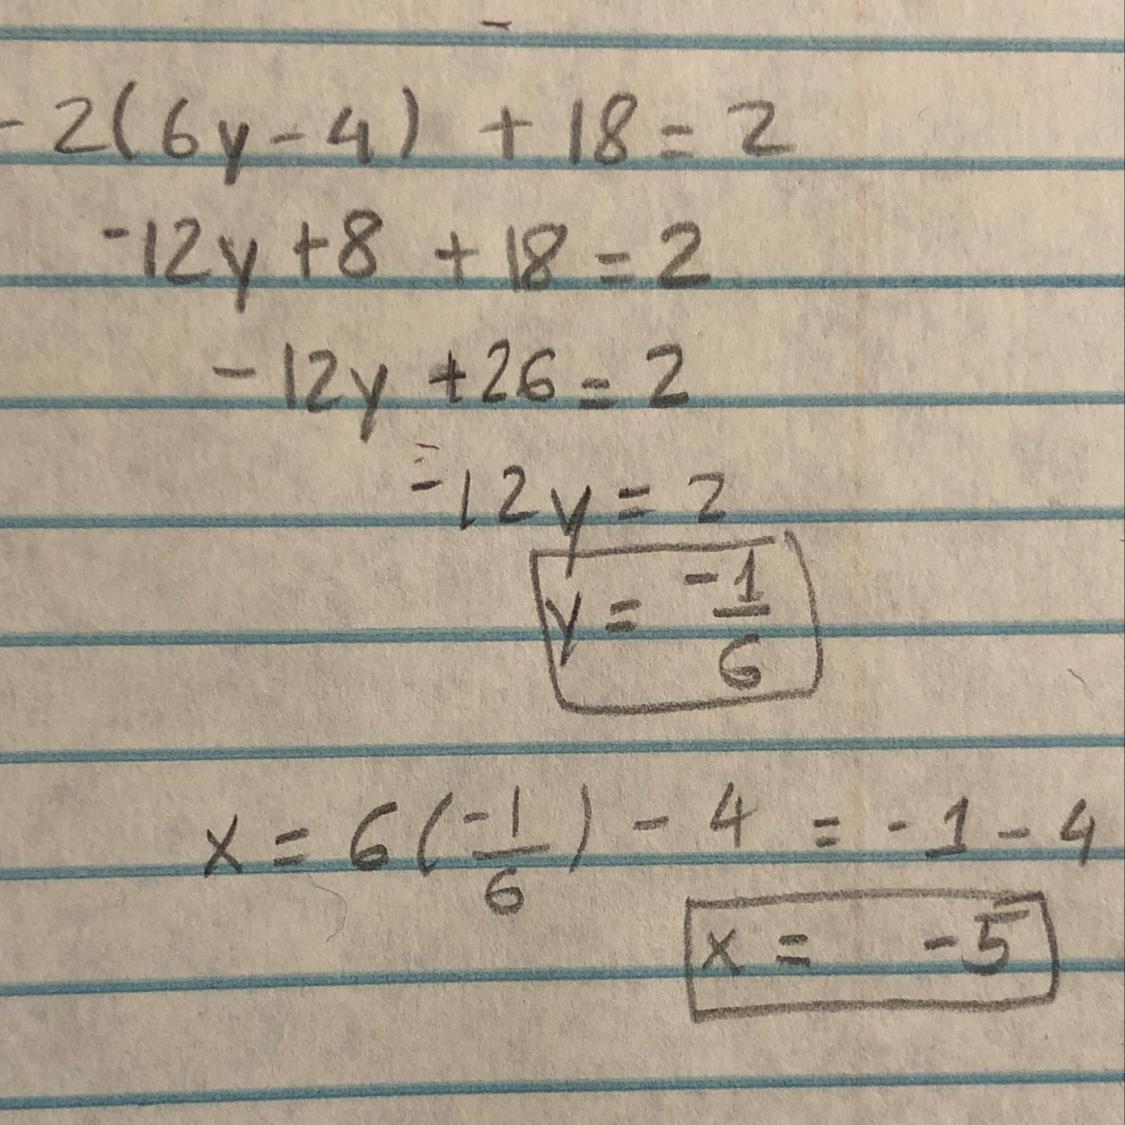 -2(6y-4) +18=2
-12y+8 +18=2
-12y +26=2
-12y=2
y= -1/6
x=6(-1/6)-4 = -1-4
x= -5